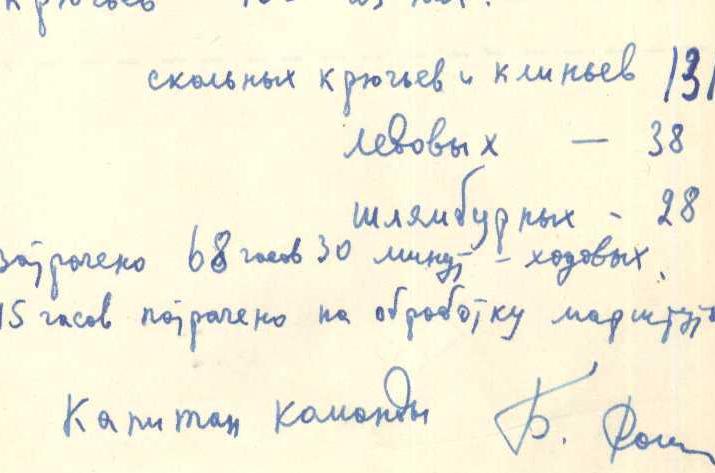 крючьев
скольных крючьев и клиньев 131
ледовых — 38
шлямбурных - 28
затрачено 68 часов 30 минут - ходовых.
15 часов потрачено на обработку маршрута
Капитан команды Б.